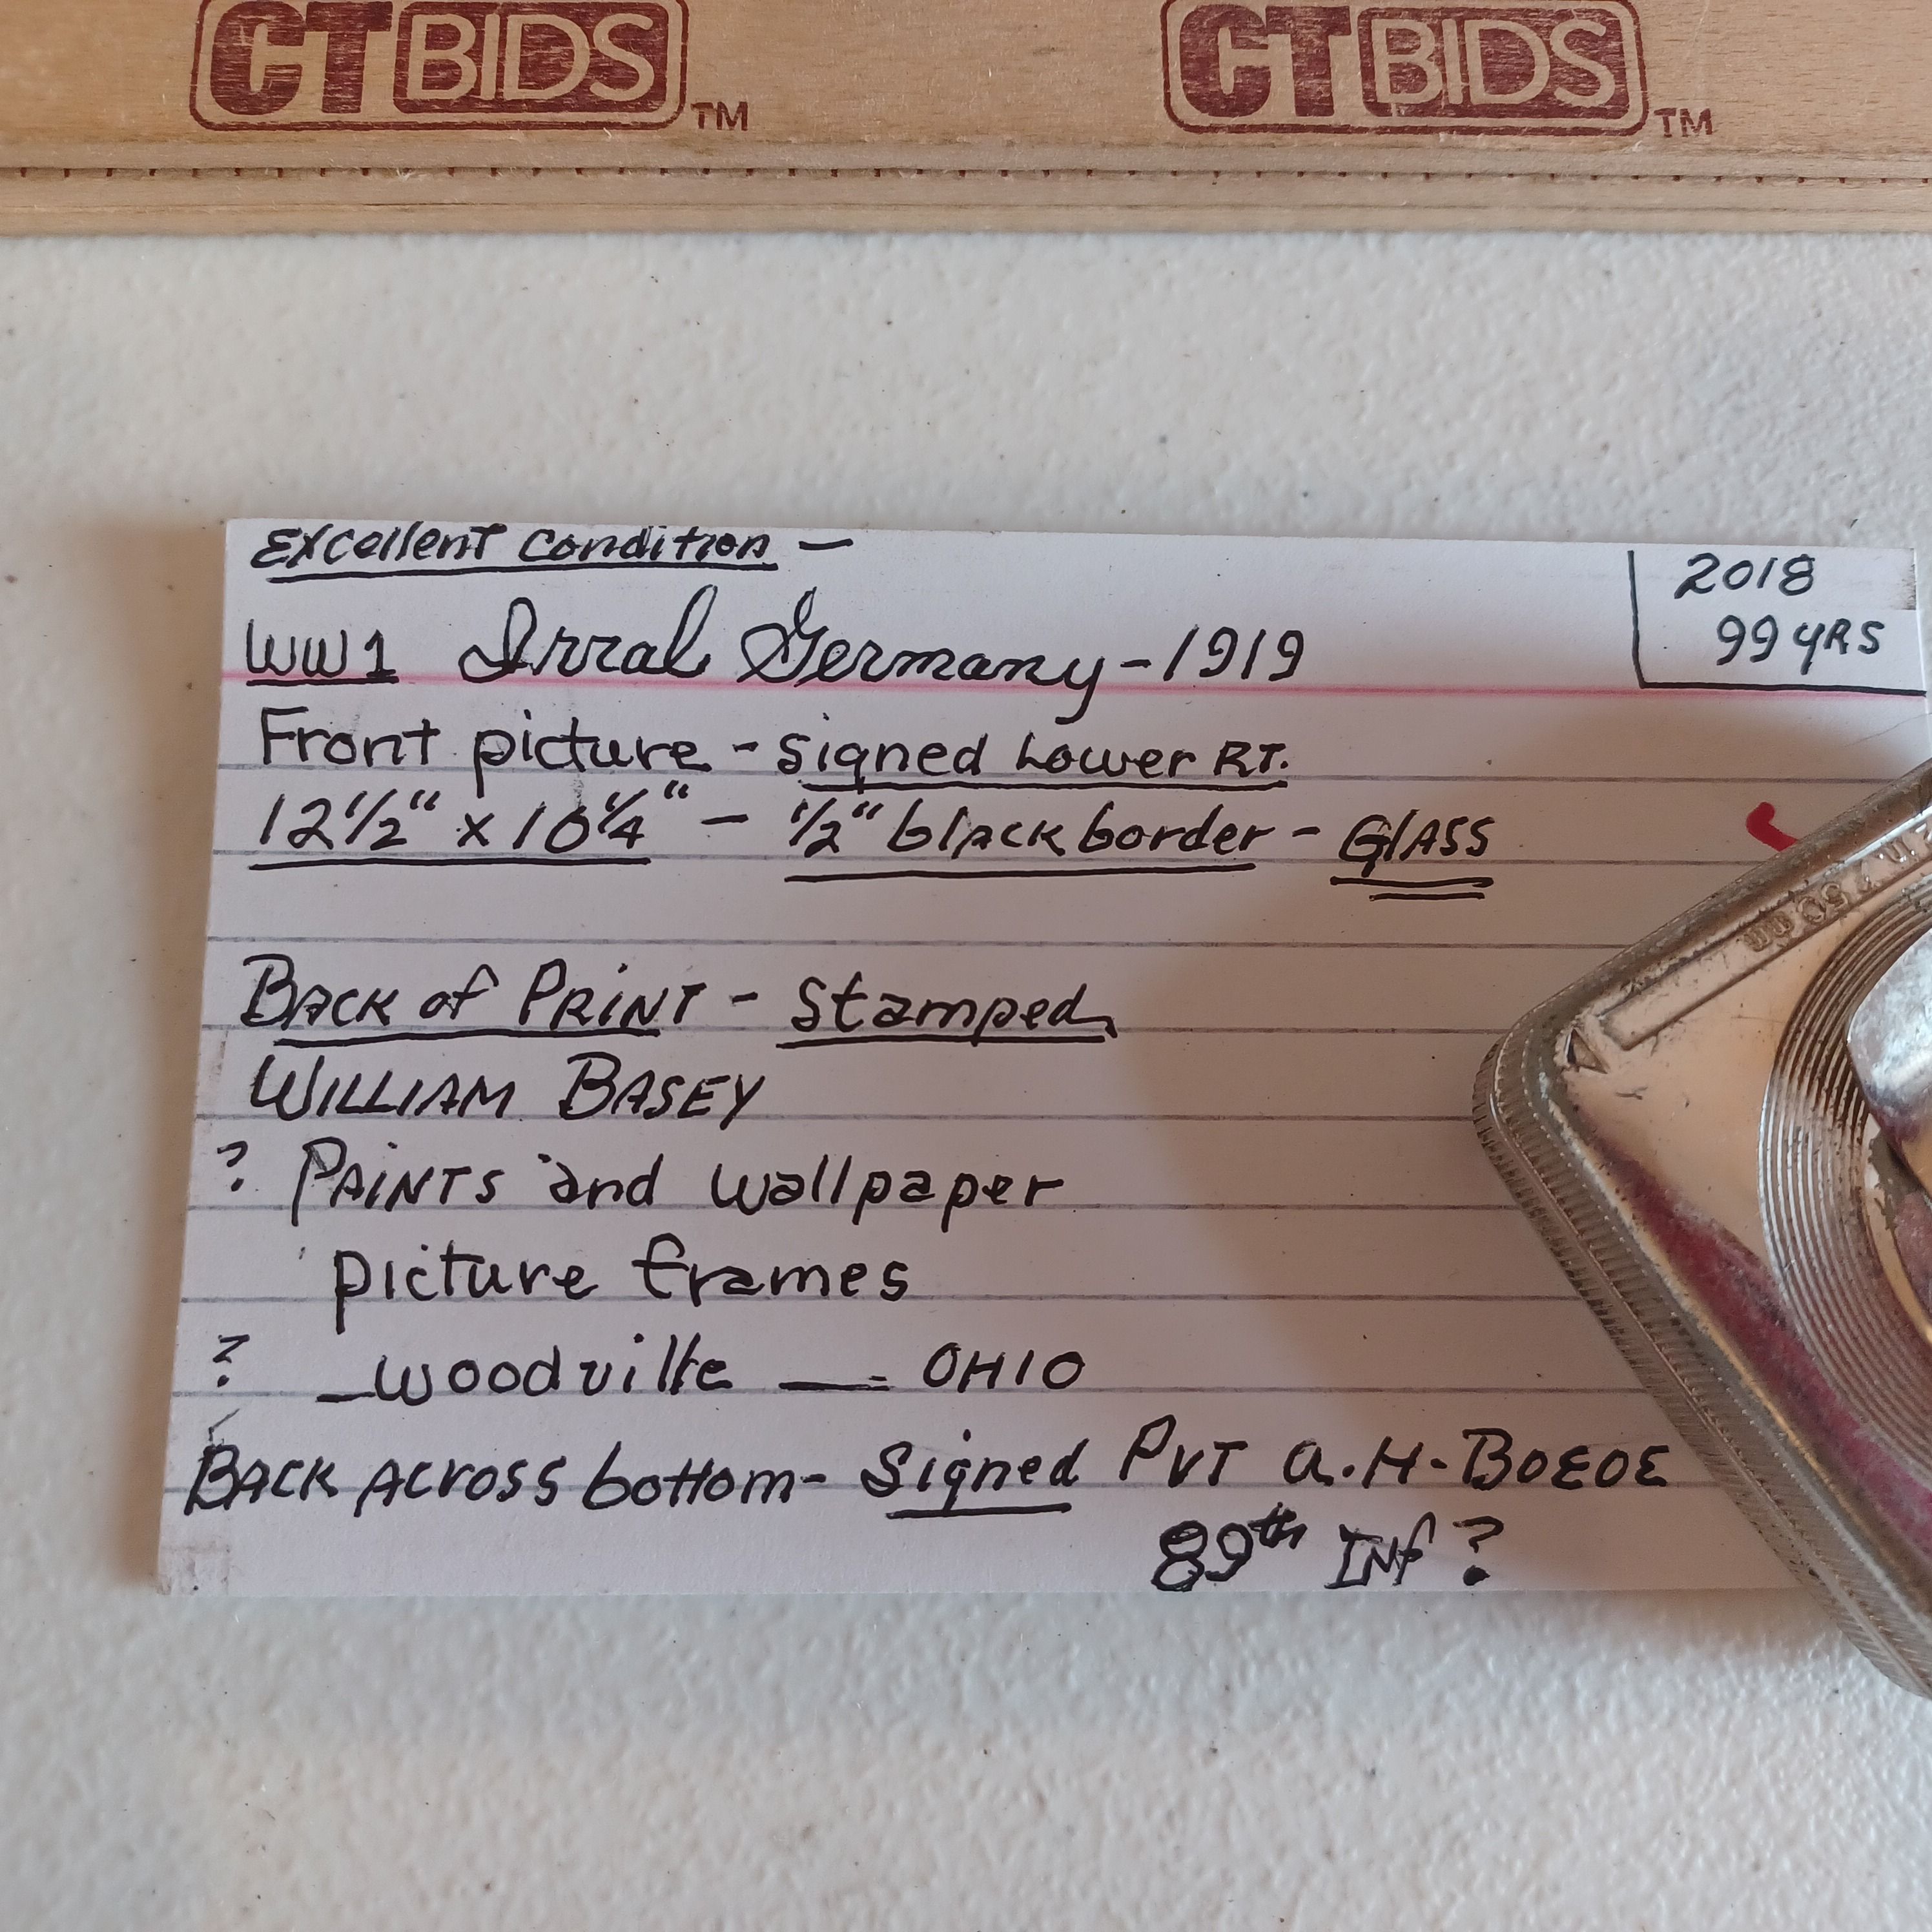 CTBIDS TM CTBIDS TM
Excellent condition -
2018
99 YRS
WW1 Irral Germany - 1919
Front picture - signed Lower RT.
12 1/2" x 10 1/4" - 1/2" black border - GLASS
BACK of PRINT - Stamped
WILLIAM BASEY
? PAINTS and wallpaper
picture frames
? _woodville __ OHIO
BACK ACROSS bottom - Signed PVT A.H. BOEOE
89th INf ?